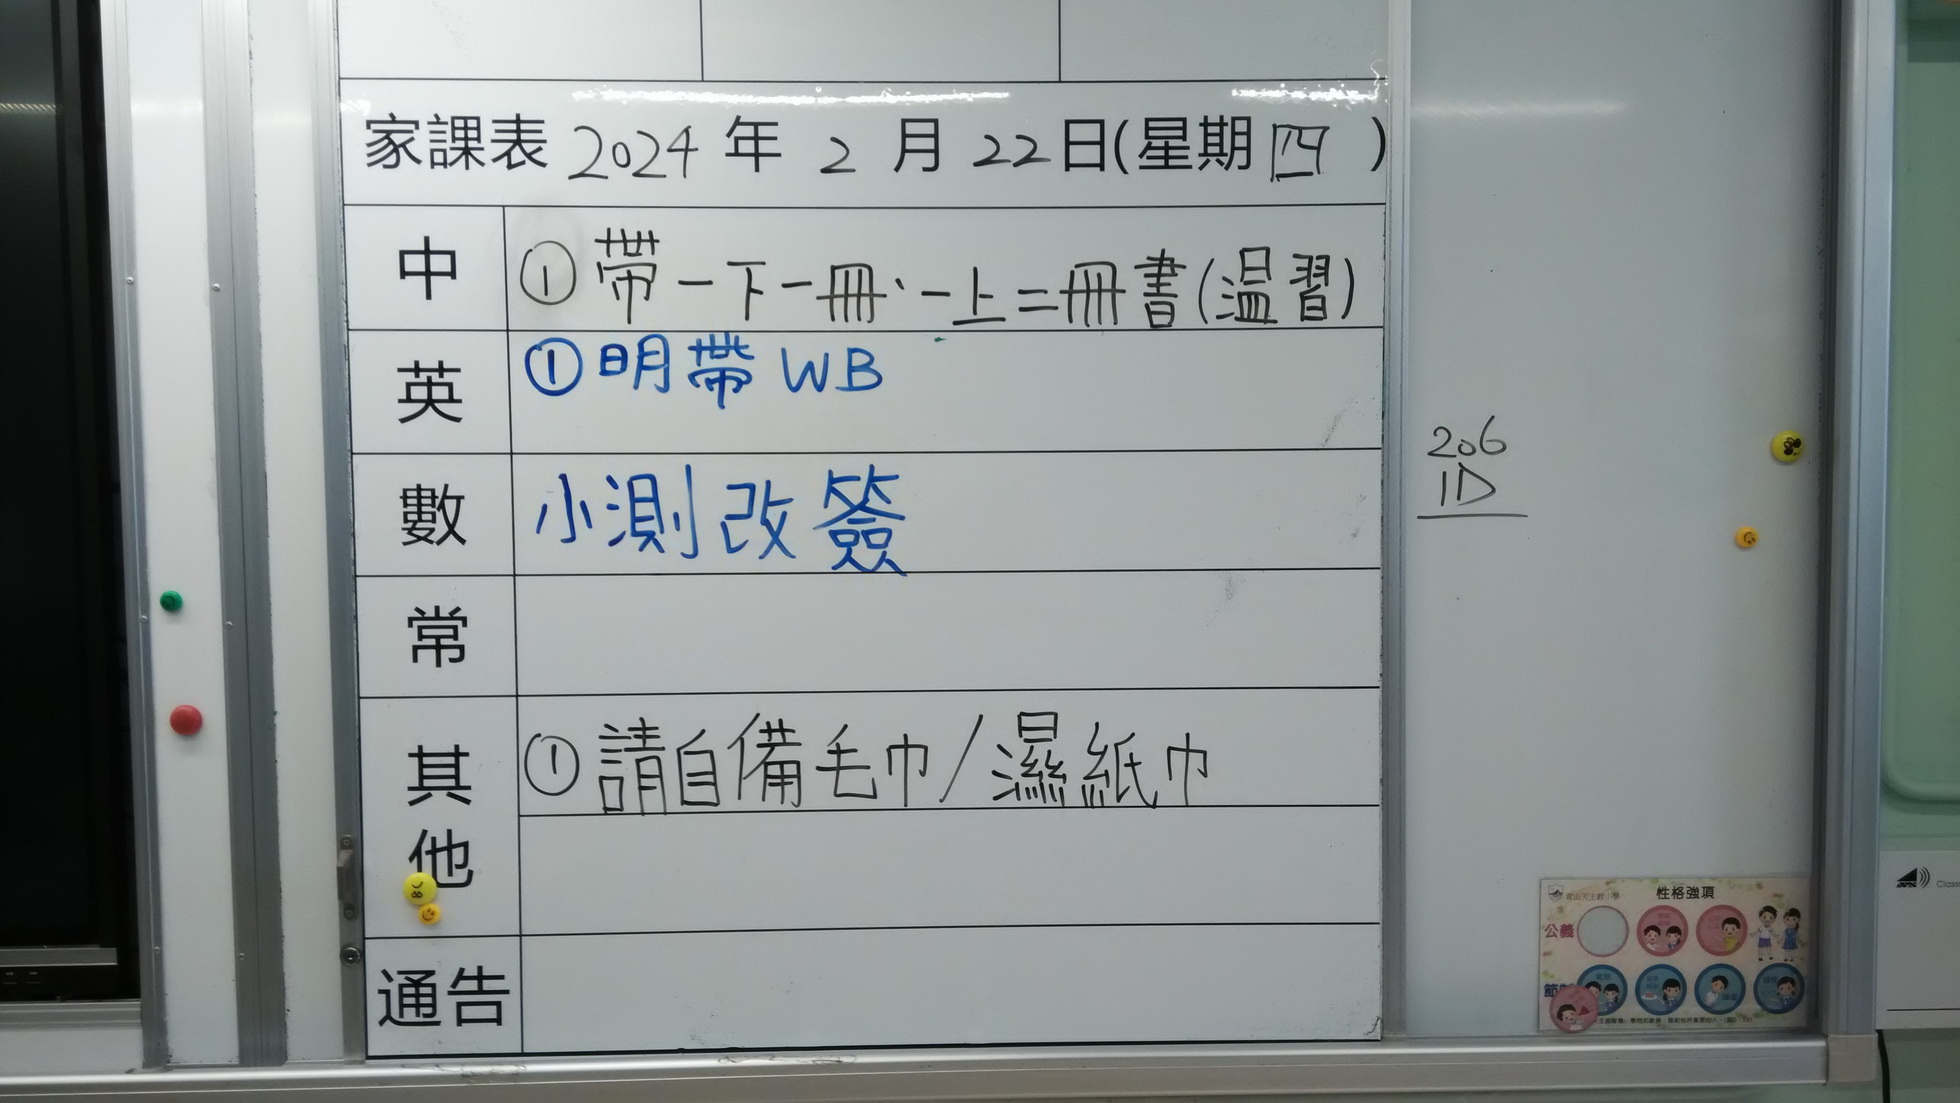 家課表 2024 年 2 月 22 日(星期 四 )
中 ① 帶一下一冊、一上二冊書(温習)
英 ① 明帶 WB
數 小測改簽
常
其他 ① 請自備毛巾/濕紙巾
通告
206
1D
性格強項
公義
Class